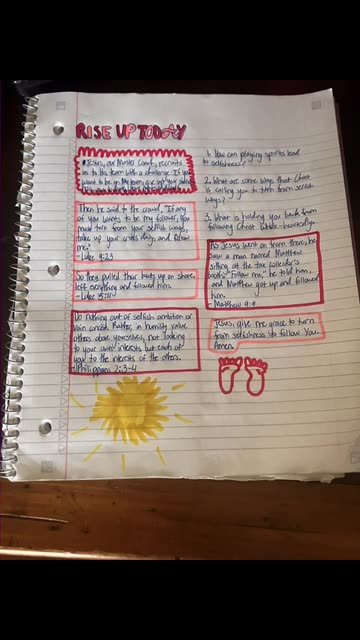 RISE UP TODAY
"Jesus, our Master Coach, recruits
us to His team with a challenge. If you
want to be on My team, give up your
Then he said to the crowd, "If any
of you wants to be my follower, you
must turn from your selfish ways,
take up your cross daily, and follow
me."
- Luke 9:23
So they pulled their boats up on shore,
left everything and followed him.
- Luke 5:11
Do nothing out of selfish ambition or
vain conceit. Rather, in humility value
others above yourselves, not looking
to your own interests but each of
you to the interests of the others.
- Philippians 2:3-4
1. How can playing sports lead
to selfishness?
2. What are some ways that Christ
is calling you to turn from selfish
ways?
3. What is holding you back from
following Christ whole-heartedly?
As Jesus went on from there, he
saw a man named Matthew
sitting at the tax collector's
booth. "Follow me," he told him,
and Matthew got up and followed
him.
- Matthew 9:9
Jesus, give me grace to turn
from selfishness to follow You.
Amen.